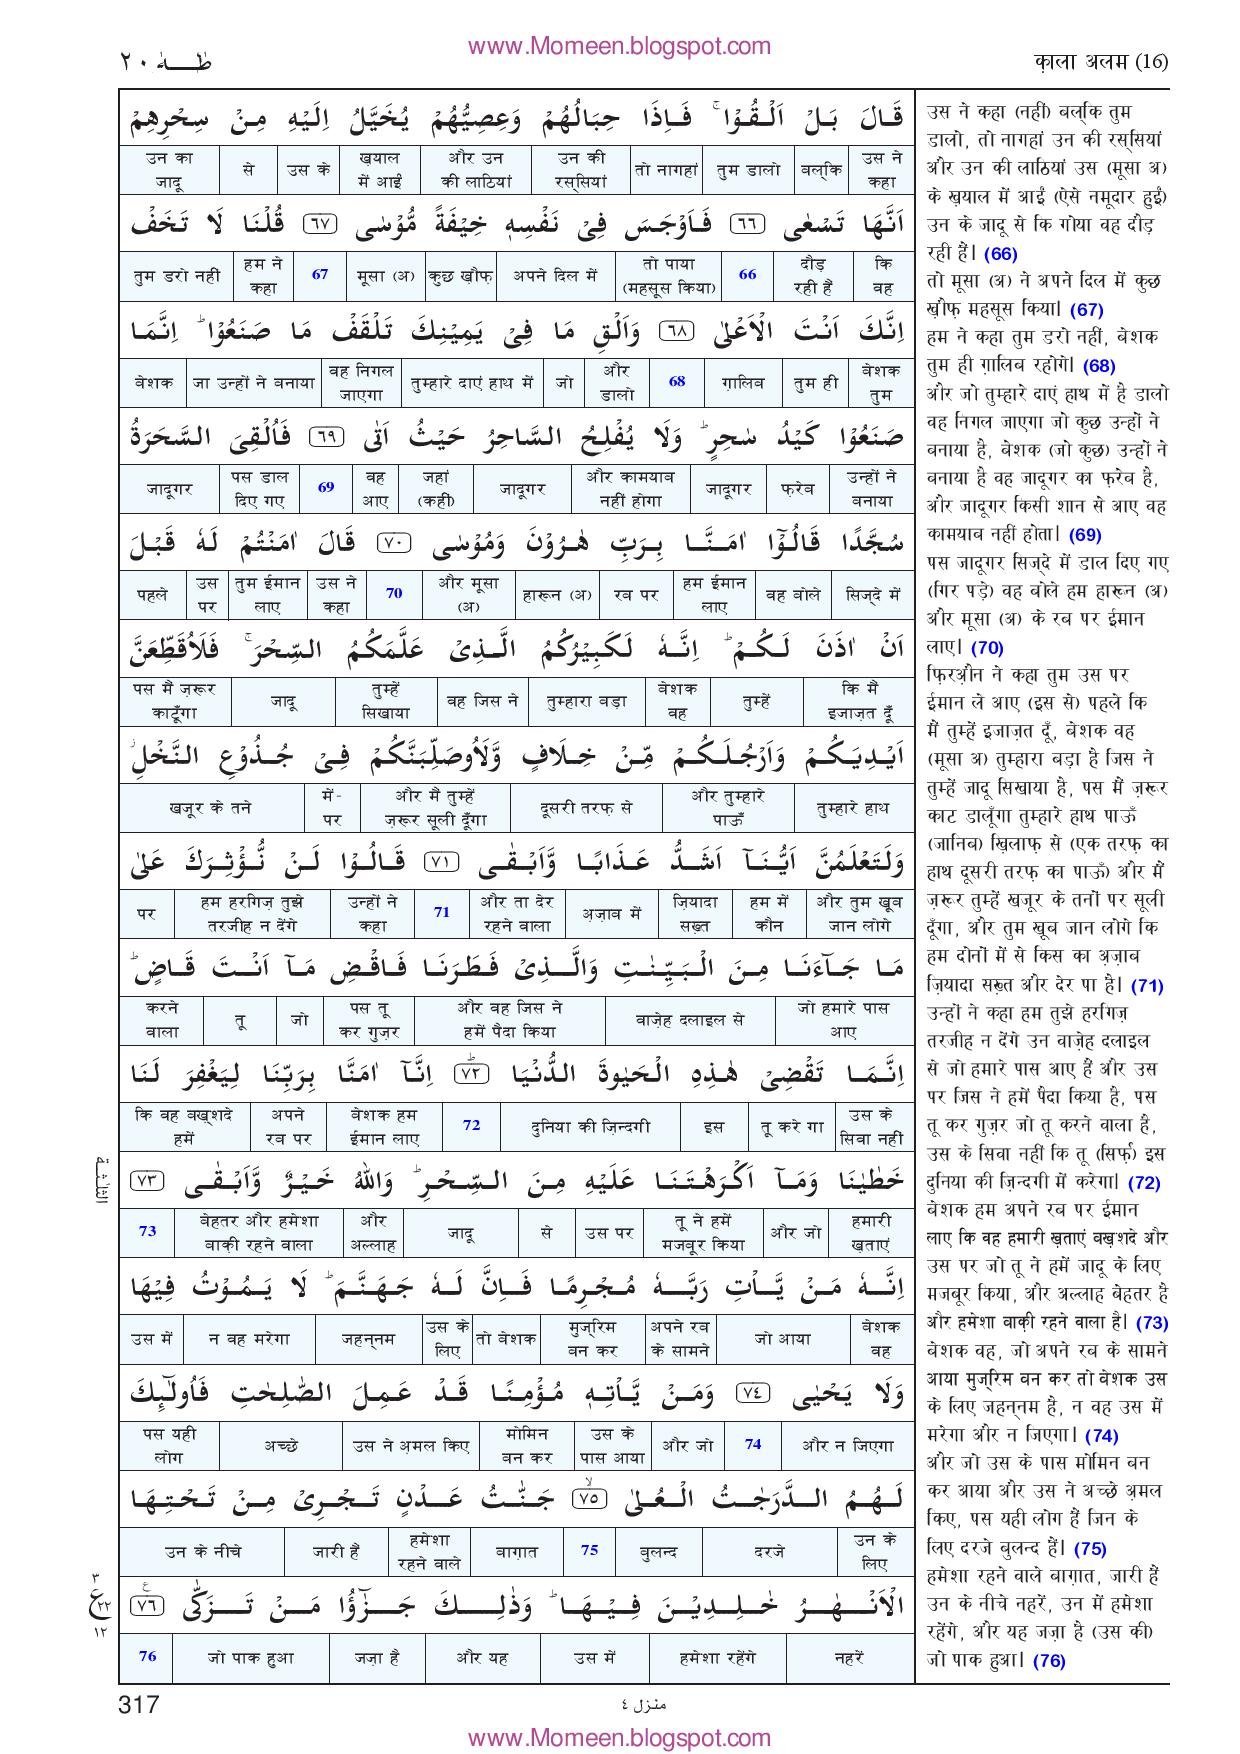 www.Momeen.blogspot.com
क़ाला अलम (16)
طٰهٰ ٢٠
قَالَ بَلْ اَلْقُوْا ۚ فَاِذَا حِبَالُهُمْ وَعِصِيُّهُمْ يُخَيَّلُ اِلَيْهِ مِنْ سِحْرِهِمْ
उस ने कहा बल्कि तुम डालो तो नागहां उन की रस्सियां और उन की लाठियां ख़याल में आईं उस के से उन का जादू
اَنَّهَا تَسْعٰى ﴿٦٦﴾ فَاَوْجَسَ فِىْ نَفْسِهٖ خِيْفَةً مُّوْسٰى ﴿٦٧﴾ قُلْنَا لَا تَخَفْ
कि वह दौड़ रही हैं 66 तो पाया (महसूस किया) अपने दिल में कुछ ख़ौफ़ मूसा (अ) 67 हम ने कहा तुम डरो नहीं
اِنَّكَ اَنْتَ الْاَعْلٰى ﴿٦٨﴾ وَاَلْقِ مَا فِىْ يَمِيْنِكَ تَلْقَفْ مَا صَنَعُوْا ؕ اِنَّمَا
बेशक तुम तुम ही ग़ालिब 68 और डालो जो तुम्हारे दाएं हाथ में वह निगल जाएगा जा उन्हों ने बनाया बेशक
صَنَعُوْا كَيْدُ سٰحِرٍ ؕ وَلَا يُفْلِحُ السَّاحِرُ حَيْثُ اَتٰى ﴿٦٩﴾ فَاُلْقِىَ السَّحَرَةُ
उन्हों ने बनाया फ़रेब जादूगर और कामयाब नहीं होगा जादूगर जहां (कहीं) वह आए 69 पस डाल दिए गए जादूगर
سُجَّدًا قَالُوْۤا اٰمَنَّا بِرَبِّ هٰرُوْنَ وَمُوْسٰى ﴿٧٠﴾ قَالَ اٰمَنْتُمْ لَهٗ قَبْلَ
सिज्दे में वह बोले हम ईमान लाए रब पर हारून (अ) और मूसा (अ) 70 उस ने कहा तुम ईमान लाए उस पर पहले
اَنْ اٰذَنَ لَكُمْ ؕ اِنَّهٗ لَكَبِيْرُكُمُ الَّذِىْ عَلَّمَكُمُ السِّحْرَ ۚ فَلَاُقَطِّعَنَّ
कि मैं इजाज़त दूँ तुम्हें बेशक वह तुम्हारा बड़ा वह जिस ने तुम्हें सिखाया जादू पस मैं ज़रूर काटूँगा
اَيْدِيَكُمْ وَاَرْجُلَكُمْ مِّنْ خِلَافٍ وَّلَاُوصَلِّبَنَّكُمْ فِىْ جُذُوْعِ النَّخْلِ
तुम्हारे हाथ और तुम्हारे पाऊँ दूसरी तरफ़ से और मैं तुम्हें ज़रूर सूली दूँगा में-पर खजूर के तने
وَلَتَعْلَمُنَّ اَيُّنَاۤ اَشَدُّ عَذَابًا وَّاَبْقٰى ﴿٧١﴾ قَالُوْا لَنْ نُّؤْثِرَكَ عَلٰى
और तुम खूब जान लोगे हम में कौन ज़ियादा सख़्त अ़ज़ाब में और ता देर रहने वाला 71 उन्हों ने कहा हम हरगिज़ तुझे तरजीह न देंगे पर
مَا جَآءَنَا مِنَ الْبَيِّنٰتِ وَالَّذِىْ فَطَرَنَا فَاقْضِ مَاۤ اَنْتَ قَاضٍ ؕ
जो हमारे पास आए वाज़ेह दलाइल से और वह जिस ने हमें पैदा किया पस तू कर गुज़र जो तू करने वाला
اِنَّمَا تَقْضِىْ هٰذِهِ الْحَيٰوةَ الدُّنْيَا ﴿٧٢﴾ؕ اِنَّاۤ اٰمَنَّا بِرَبِّنَا لِيَغْفِرَ لَنَا
उस के सिवा नहीं तू करे गा इस दुनिया की ज़िन्दगी 72 बेशक हम ईमान लाए अपने रब पर कि वह बख़्शदे हमें
خَطٰيٰنَا وَمَاۤ اَكْرَهْتَنَا عَلَيْهِ مِنَ السِّحْرِ ؕ وَاللّٰهُ خَيْرٌ وَّاَبْقٰى ﴿٧٣﴾
الثلثة
हमारी ख़ताएं और जो तू ने हमें मजबूर किया उस पर से जादू और अल्लाह बेहतर और हमेशा बाक़ी रहने वाला 73
اِنَّهٗ مَنْ يَّاْتِ رَبَّهٗ مُجْرِمًا فَاِنَّ لَهٗ جَهَنَّمَ ؕ لَا يَمُوْتُ فِيْهَا
बेशक वह जो आया अपने रब के सामने मुज्रिम बन कर तो बेशक उस के लिए जहन्नम न वह मरेगा उस में
وَلَا يَحْيٰى ﴿٧٤﴾ وَمَنْ يَّاْتِهٖ مُؤْمِنًا قَدْ عَمِلَ الصّٰلِحٰتِ فَاُولٰٓئِكَ
और न जिएगा 74 और जो उस के पास आया मोमिन बन कर उस ने अ़मल किए अच्छे पस यही लोग
لَهُمُ الدَّرَجٰتُ الْعُلٰى ﴿٧٥﴾ۙ جَنّٰتُ عَدْنٍ تَجْرِىْ مِنْ تَحْتِهَا
उन के लिए दरजे बुलन्द 75 बाग़ात हमेशा रहने वाले जारी हैं उन के नीचे
الْاَنْهٰرُ خٰلِدِيْنَ فِيْهَا ؕ وَذٰلِكَ جَزٰٓؤُا مَنْ تَزَكّٰى ﴿٧٦﴾
٣ ع ٢٢ ١٢
नहरें हमेशा रहेंगे उस में और यह जज़ा है जो पाक हुआ 76
उस ने कहा (नहीं) बल्कि तुम
डालो, तो नागहां उन की रस्सियां
और उन की लाठियां उस (मूसा अ)
के ख़याल में आईं (ऐसे नमूदार हुईं)
उन के जादू से कि गोया वह दौड़
रही हैं। (66)
तो मूसा (अ) ने अपने दिल में कुछ
ख़ौफ़ महसूस किया। (67)
हम ने कहा तुम डरो नहीं, बेशक
तुम ही ग़ालिब रहोगे। (68)
और जो तुम्हारे दाएं हाथ में है डालो
वह निगल जाएगा जो कुछ उन्हों ने
बनाया है, बेशक (जो कुछ) उन्हों ने
बनाया है वह जादूगर का फ़रेब है,
और जादूगर किसी शान से आए वह
कामयाब नहीं होता। (69)
पस जादूगर सिज्दे में डाल दिए गए
(गिर पड़े) वह बोले हम हारून (अ)
और मूसा (अ) के रब पर ईमान
लाए। (70)
फ़िरऔ़न ने कहा तुम उस पर
ईमान ले आए (इस से) पहले कि
मैं तुम्हें इजाज़त दूँ, बेशक वह
(मूसा अ) तुम्हारा बड़ा है जिस ने
तुम्हें जादू सिखाया है, पस मैं ज़रूर
काट डालूँगा तुम्हारे हाथ पाऊँ
(जानिब) ख़िलाफ़ से (एक तरफ़ का
हाथ दूसरी तरफ़ का पाऊँ) और मैं
ज़रूर तुम्हें खजूर के तनों पर सूली
दूँगा, और तुम खूब जान लोगे कि
हम दोनों में से किस का अ़ज़ाब
ज़ियादा सख़्त और देर पा है। (71)
उन्हों ने कहा हम तुझे हरगिज़
तरजीह न देंगे उन वाज़ेह दलाइल
से जो हमारे पास आए हैं और उस
पर जिस ने हमें पैदा किया है, पस
तू कर गुज़र जो तू करने वाला है,
उस के सिवा नहीं कि तू (सिर्फ़) इस
दुनिया की ज़िन्दगी में करेगा। (72)
बेशक हम अपने रब पर ईमान
लाए कि वह हमारी ख़ताएं बख़्शदे और
उस पर जो तू ने हमें जादू के लिए
मजबूर किया, और अल्लाह बेहतर है
और हमेशा बाक़ी रहने वाला है। (73)
बेशक वह, जो अपने रब के सामने
आया मुज्रिम बन कर तो बेशक उस
के लिए जहन्नम है, न वह उस में
मरेगा और न जिएगा। (74)
और जो उस के पास मोमिन बन
कर आया और उस ने अच्छे अ़मल
किए, पस यही लोग हैं जिन के
लिए दरजे बुलन्द हैं। (75)
हमेशा रहने वाले बाग़ात, जारी हैं
उन के नीचे नहरें, उन में हमेशा
रहेंगे, और यह जज़ा है (उस की)
जो पाक हुआ। (76)
317
منزل ٤
www.Momeen.blogspot.com